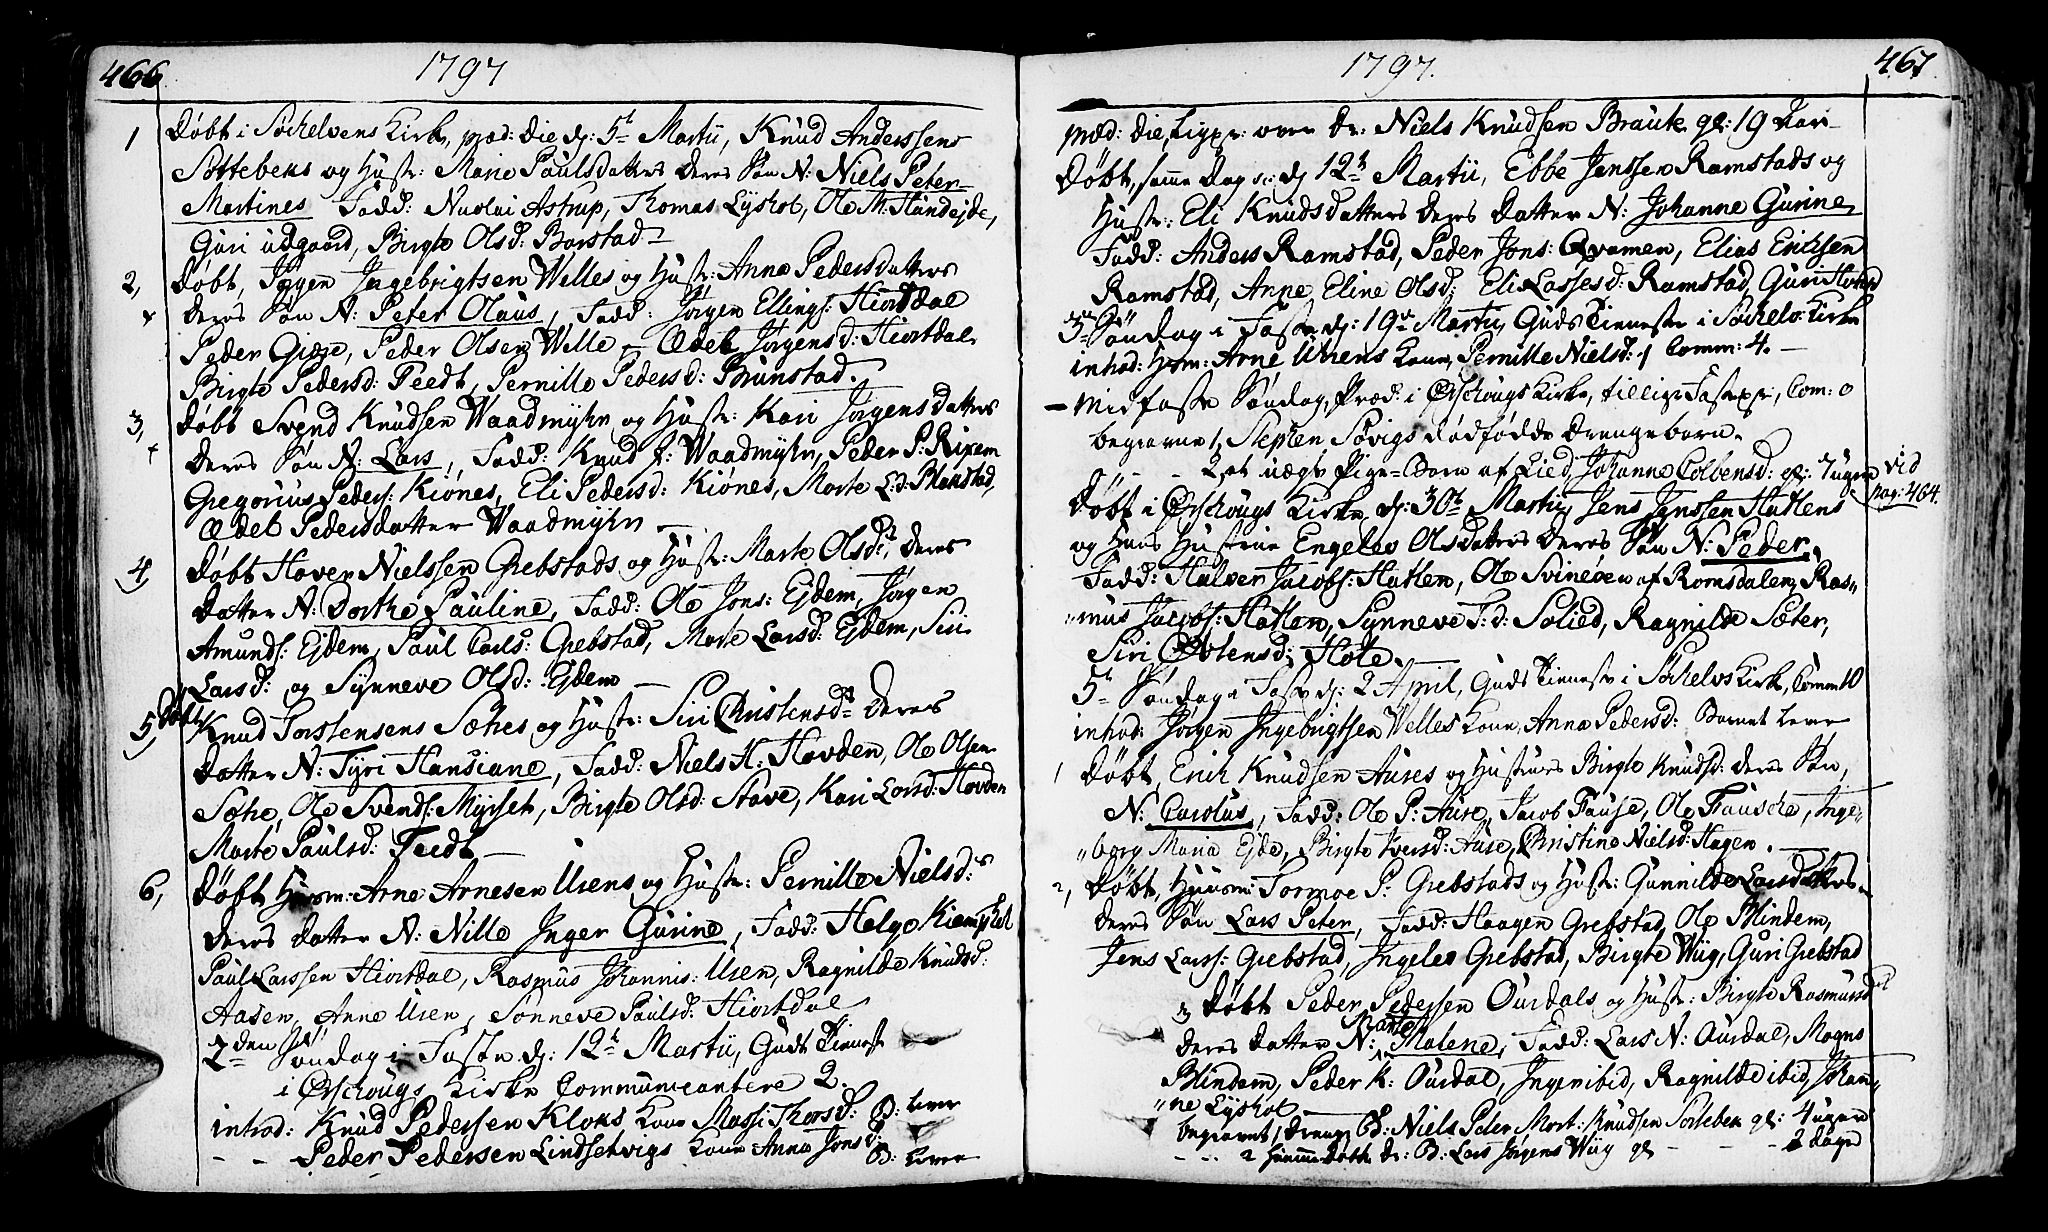 466
1797
1 Døbt i Søchelvens Kirke, præd: die dj: 5t Martii, Knud Anderssens
Sottebeks og Hustr: Marie Paulsdatters deres Søn N: Niels Peter
Martines Fadd: Nicolai Astrup, Thomas Lyshol, Ole M: Hundejde,
Guri udgaard, Birgte Olsd: Barstad
2, Døbt, Jørgen Ingebrigtsen Welles og Hustr: Anne Pedersdatters
deres Søn N: Peter Olaus, Fadd: Jørgen Ellings: Hiortdal
Peder Giære, Peder Olsen Welle, Ædel Jørgensd: Hiortdal
Birgte Pedersd: Teedt, Pernille Pedersd: Brunstad.
3, Døbt Svend Knudsen Waadmyhr og Hustr: Kari Jørgensdatters
deres Søn N: Lars, Fadd: Knud J: Waadmyhr, Peder P: Rixem
Gregorius Peders: Kiønes, Eli Pedersd: Kiønes, Marte L:d: Blakstad,
Ædel Pedersdatter Waadmyhr
4, Døbt Haven Nielssen Grebstads og Hustr: Marte Olsdr, deres
Datter N: Dorthe Pauline, Fadd: Ole Jons: Ejdem, Jørgen
Amunds: Ejdem, Paul Carls: Grebstad, Marte Larsd: Ejdem, Siri
Larsd: og Synneve Olsd: Ejdem
5, Døbt Knud Torstensens Sæthes og Hustr: Siri Christensdr deres
Datter N: Tyri Hansiane, Fadd: Niels H: Hovden, Ole Olsen
Sæthe, Ole Svends: Myrset, Birgte Olsd: Stave, Kari Larsd: Hovden
Marte Paulsd: Teedt
6, Døbt Huusm: Arne Arnesen Urens og Hustr: Pernille Nielsd:
deres Datter N: Nille Inger Gurine, Fadd: Helge
Paul Larssen Hiortdal, Rasmus Johannis: Uren, Ragnilde Knudsd:
Aasen, Anne Uren, Sønneve Paulsd: Hiortdal
2den Søndag i Faste dj: 12t Martii, Guds Tieneste
i Ørschougs Kirke Communicantere 2.
introd: Knud Pedersen Kloks Kone Massi Thorsd: B: lever
- - Peder Pedersen Lindsetvigs Kone Anne Jonsd: B: lever
1797.
467
præd: die, Ligpr: over Dr: Niels Knudsen Braute gl: 19 Aar
Døbt, samme Dag dj 12t Martii, Ebbe Jenssen Ramstads og
Hustr: Eli Knudsdatters deres Datter N: Johanne Gurine,
Fadd: Anders Ramstad, Peder Jons: Qvamen, Elias Erichsen
Ramstad, Anne Eline Olsd: Eli Lassesd: Ramstad, Guri
3die Søndag i Faste dj: 19de Martii, Guds Tieneste i Søchelv: Kirke
introd: Hsm: Arne Urens Kone, Pernille Nielsd: Comm: 4.
Midfaste Søndag, Præd: i Ørschougs Kirke, tillige Fastepr:, Com: 0
begravne 1, Steffen Søvigs dødfødde Drengebarn.
- - 2 et uægte Pige-Barn af Lied, Johanne Colbensd: gl: 7 uger vid
pag: 464.
Døbt i Ørschougs Kirke dj: 30t Martii, Jens Jenssen Hatlens
og Hans Hustrue Engelev Olsdatters deres Søn N: Peder,
Fadd: Halver Jacobs: Hatlen, Ole Svinøen af Romsdalen, Ras-
mus Jacobs: Hatlen, Synneve J:d: Solied, Ragnilde Sæter,
Siri Østensd: Hole.
5t Søndag i Faste dj: 2 April, Guds Tieneste i Søchelvs Kirke, Comm: 10
introd: Jørgen Ingebrigtsen Welles Kone, Anne Pedersd: Barnet lever
1 Døbt, Erich Knudsen Aures og Hustrues Birgte Knudsd: deres Søn,
N: Carolus, Fadd: Ole P: Aure, Jacob Fause, Ole Fausche, Inge-
borg Maria Ejde, Birgte Iversd: Aure, Christine Nielsd: Hagen.
2, Døbt, Huusm: Tormoe P: Grebstads og Hustr: Gunnilde Larsdatters
deres Søn Lars Peter, Fadd: Haagen Grebstad, Ole Blindem,
Jens Larss: Grebstad, Ingelev Grebstad, Birgte Wiig, Guri Grebstad
3 Døbt Peder Pedersen Ourdals og Hustr: Birgte Rasmusd:
deres Datter N: Marte Malene, Fadd: Lars N: Ourdal, Mogns
Blindem, Peder K: Ourdal, Inger ibid, Ragnilde ibid, Johan-
ne Lyshol
begravet 1, Drenge B: Niels Peter Mart: Knudsen Sottebek gl: 4 uger
- - 2 hiemmedøbte Dr: B: Lars Jørgens Wiig gl - - 2 dage